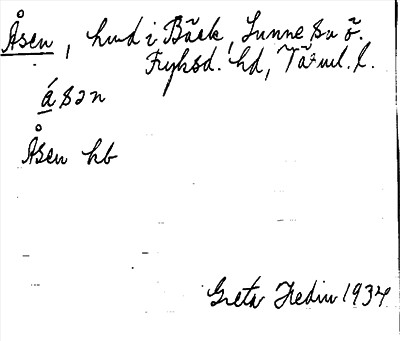 Åsen, hmd i Bäck, Sunne sn ö.
Fryksd. hd, Värml. l.
åsǝn
Åsen hb
Greta Hedin 1934